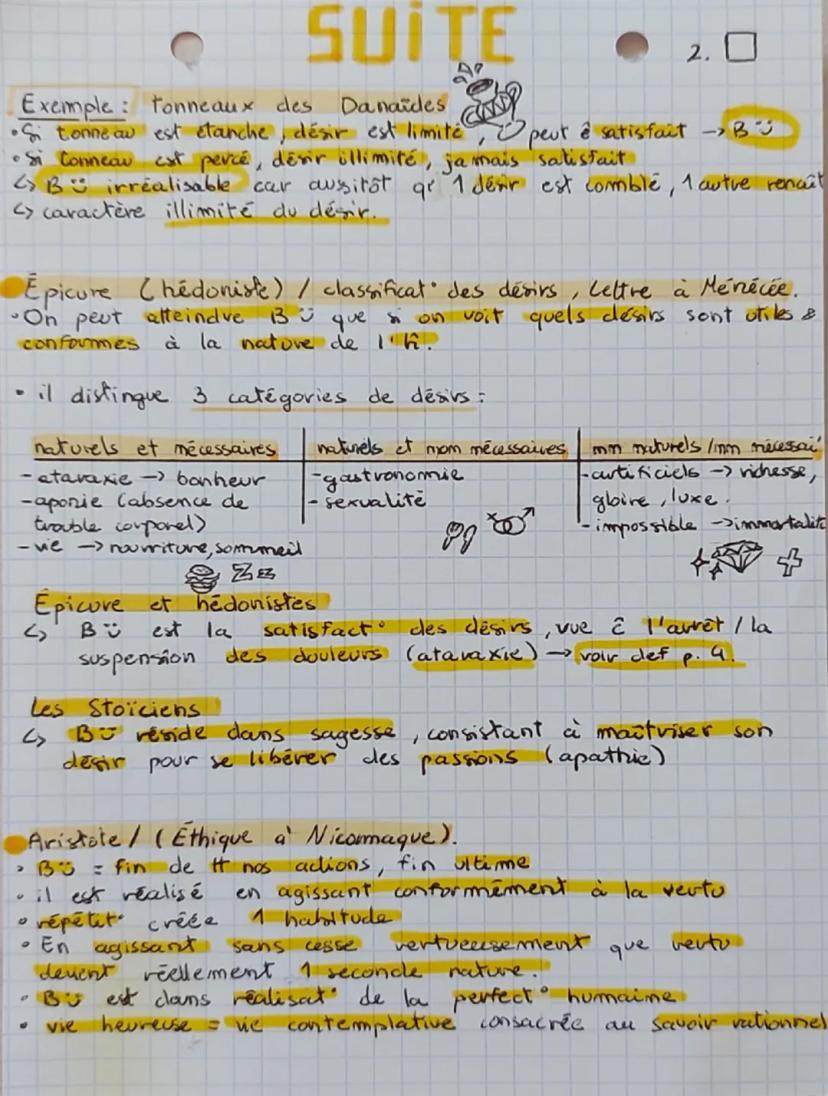 SUITE
2.
Exemple : tonneaux des Danaïdes
• Si tonneau est étanche, désir est limité, peut ê satisfait → B
• Si tonneau est percé, désir illimité, jamais satisfait
↳ B irréalisable car aussitôt qe 1 désir est comblé, 1 autre renaît
↳ caractère illimité du désir.
Épicure (hédoniste) / classificat° des désirs, Lettre à Ménécée.
• On peut atteindre B que si on voit quels désirs sont utiles &
conformes à la nature de l'H.
• il distingue 3 catégories de désirs :
naturels et nécessaires | naturels et non nécessaires | nn naturels / nn nécessai
- ataraxie → bonheur | - gastronomie | - artificiels → richesse,
- aponie (absence de | - sexualité | gloire, luxe.
trouble corporel) | - impossible → immortalité
- vie → nourriture, sommeil
ZZZ
Épicure et hédonistes
↳ B est la satisfact° des désirs, vue c̄ l'arrêt / la
suspension des douleurs (ataraxie) → voir def p. 4.
Les Stoïciens
↳ B réside dans sagesse, consistant à maîtriser son
désir pour se libérer des passions (apathie)
Aristote / (Éthique à Nicomaque).
• B = fin de tt nos actions, fin ultime
• il est réalisé en agissant conformément à la vertu
• répétit° créée 1 habitude
• En agissant sans cesse vertueusement que vertu
devient réellement 1 seconde nature.
• B est dans réalisat° de la perfect° humaine
• vie heureuse = vie contemplative consacrée au savoir rationnel